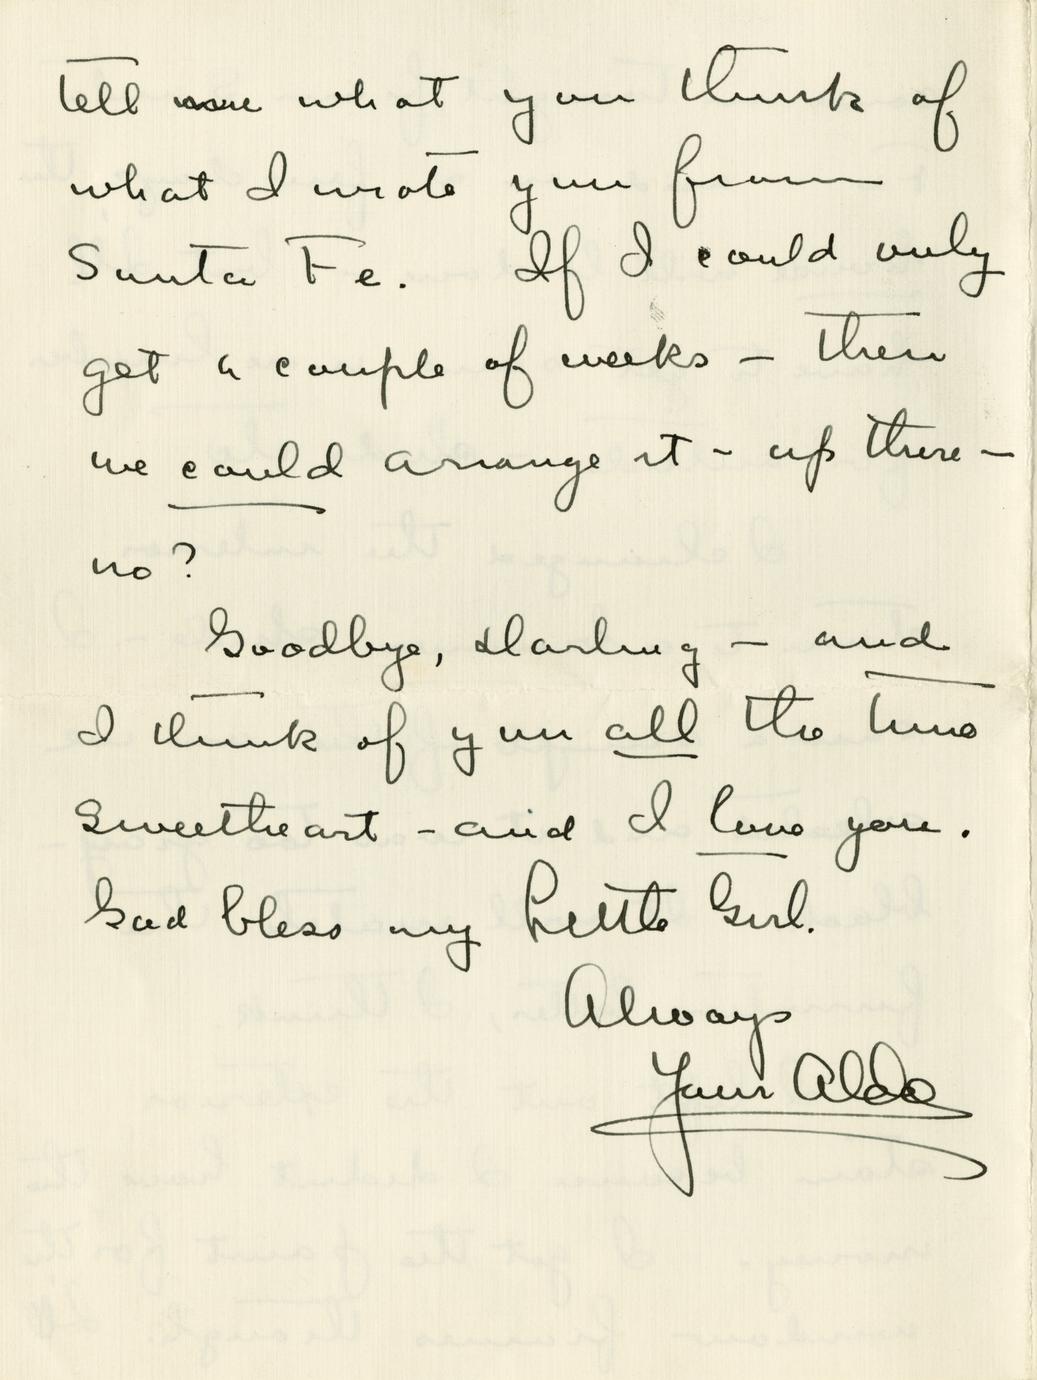 tell me what you think of
what I wrote you from
Santa Fe. If I could only
get a couple of weeks – then
we could arrange it – up there –
no?
Goodbye, Darling – and
I think of you all the time
Sweetheart – and I love you.
God bless my Little Girl.
Always
Your Aldo